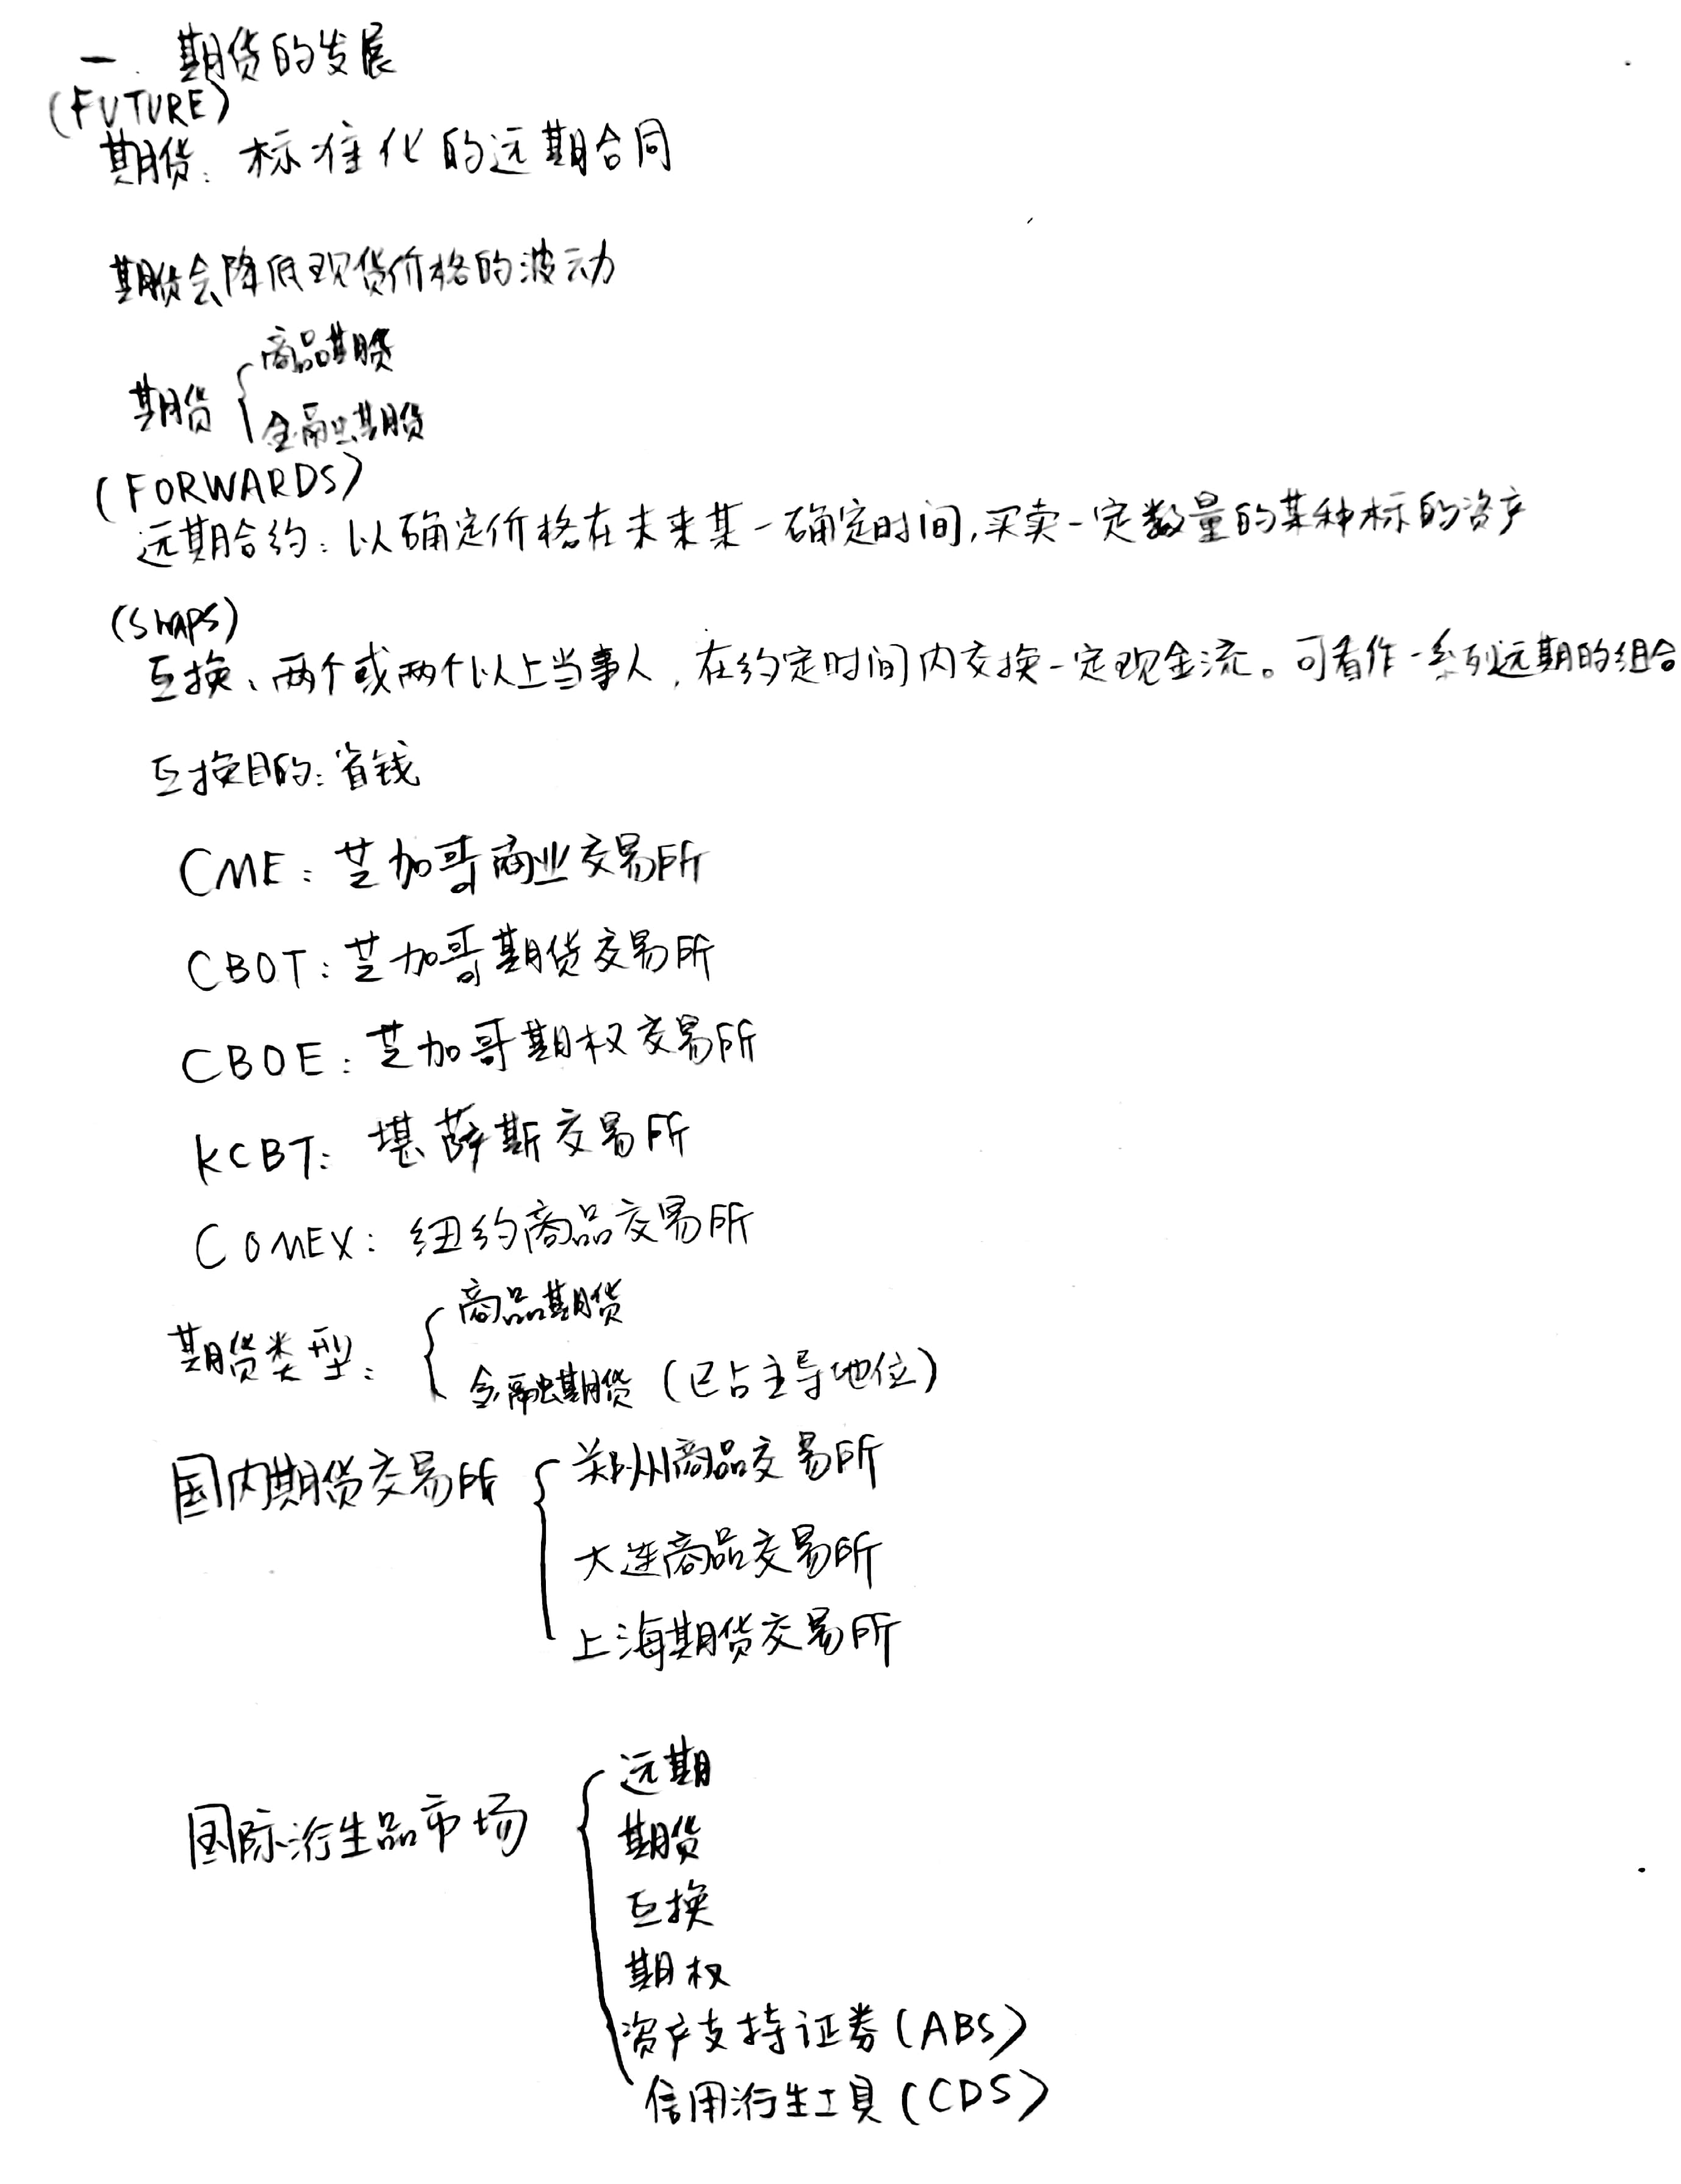 一. 期货的发展
(FUTURE)
期货: 标准化的远期合同
期货会降低现货价格的波动
商品期货
期货
金融期货
(FORWARDS)
远期合约: 以确定价格在未来某一确定时间,买卖一定数量的某种标的资产
(SWAPS)
互换、两个或两个以上当事人,在约定时间内交换一定现金流。可看作一系列远期的组合
互换目的: 省钱
CME: 芝加哥商业交易所
CBOT: 芝加哥期货交易所
CBOE: 芝加哥期权交易所
KCBT: 堪萨斯交易所
COMEX: 纽约商品交易所
商品期货
期货类型:
金融期货 (已占主导地位)
郑州商品交易所
国内期货交易所
大连商品交易所
上海期货交易所
远期
期货
国际衍生品市场
互换
期权
资产支持证券(ABS)
信用衍生工具(CDS)